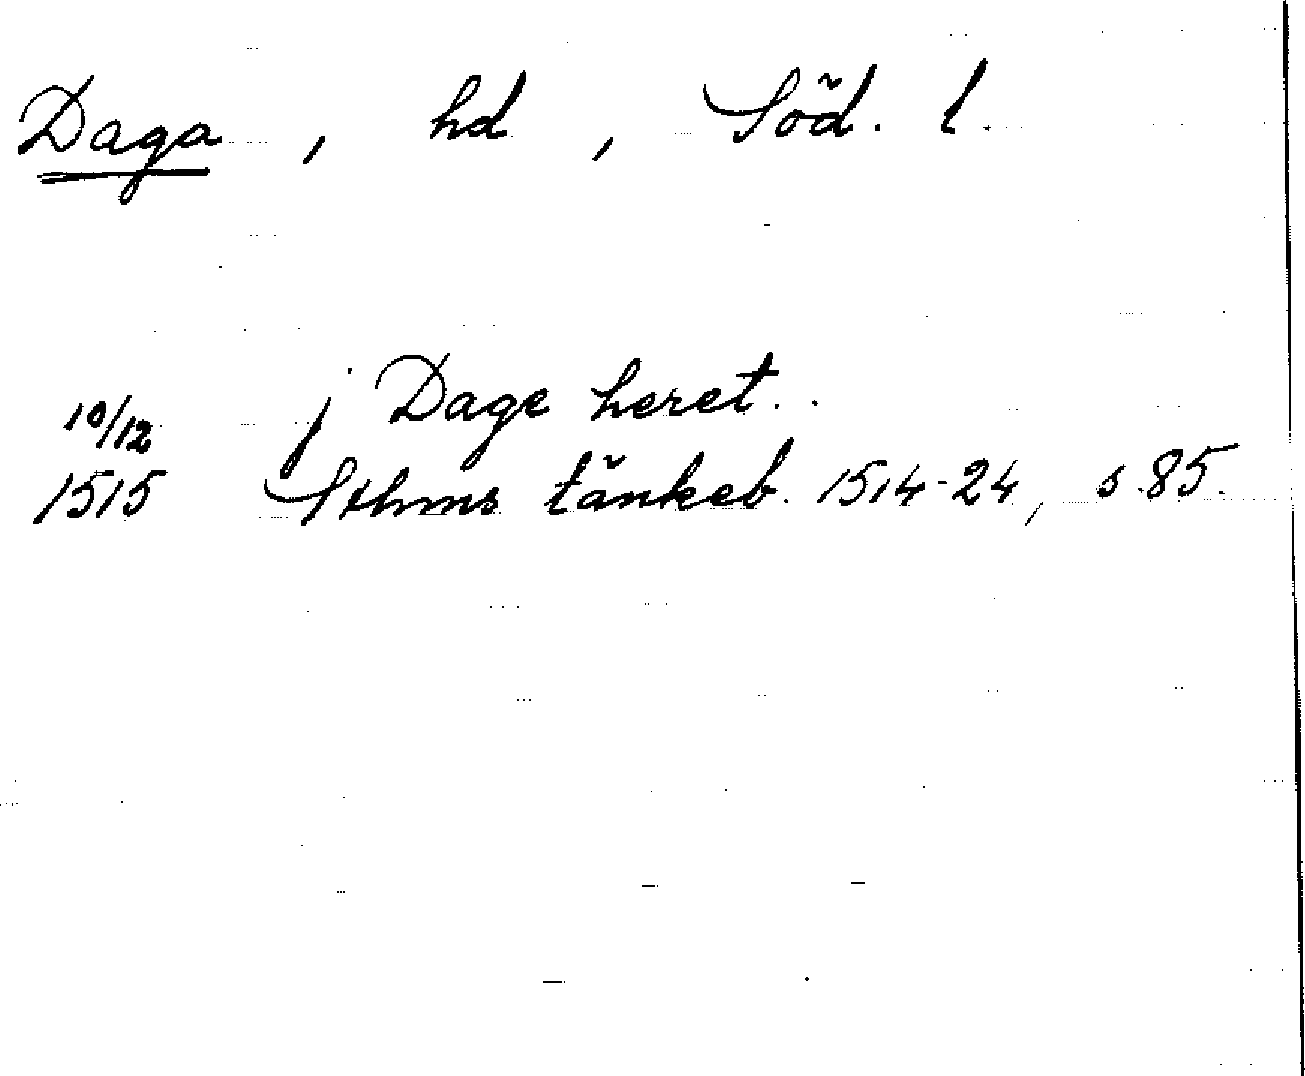 Daga, hd, Söd. l.
10/12 j Dage heret..
1515 Sthms tänkeb. 1514-24, s 85.